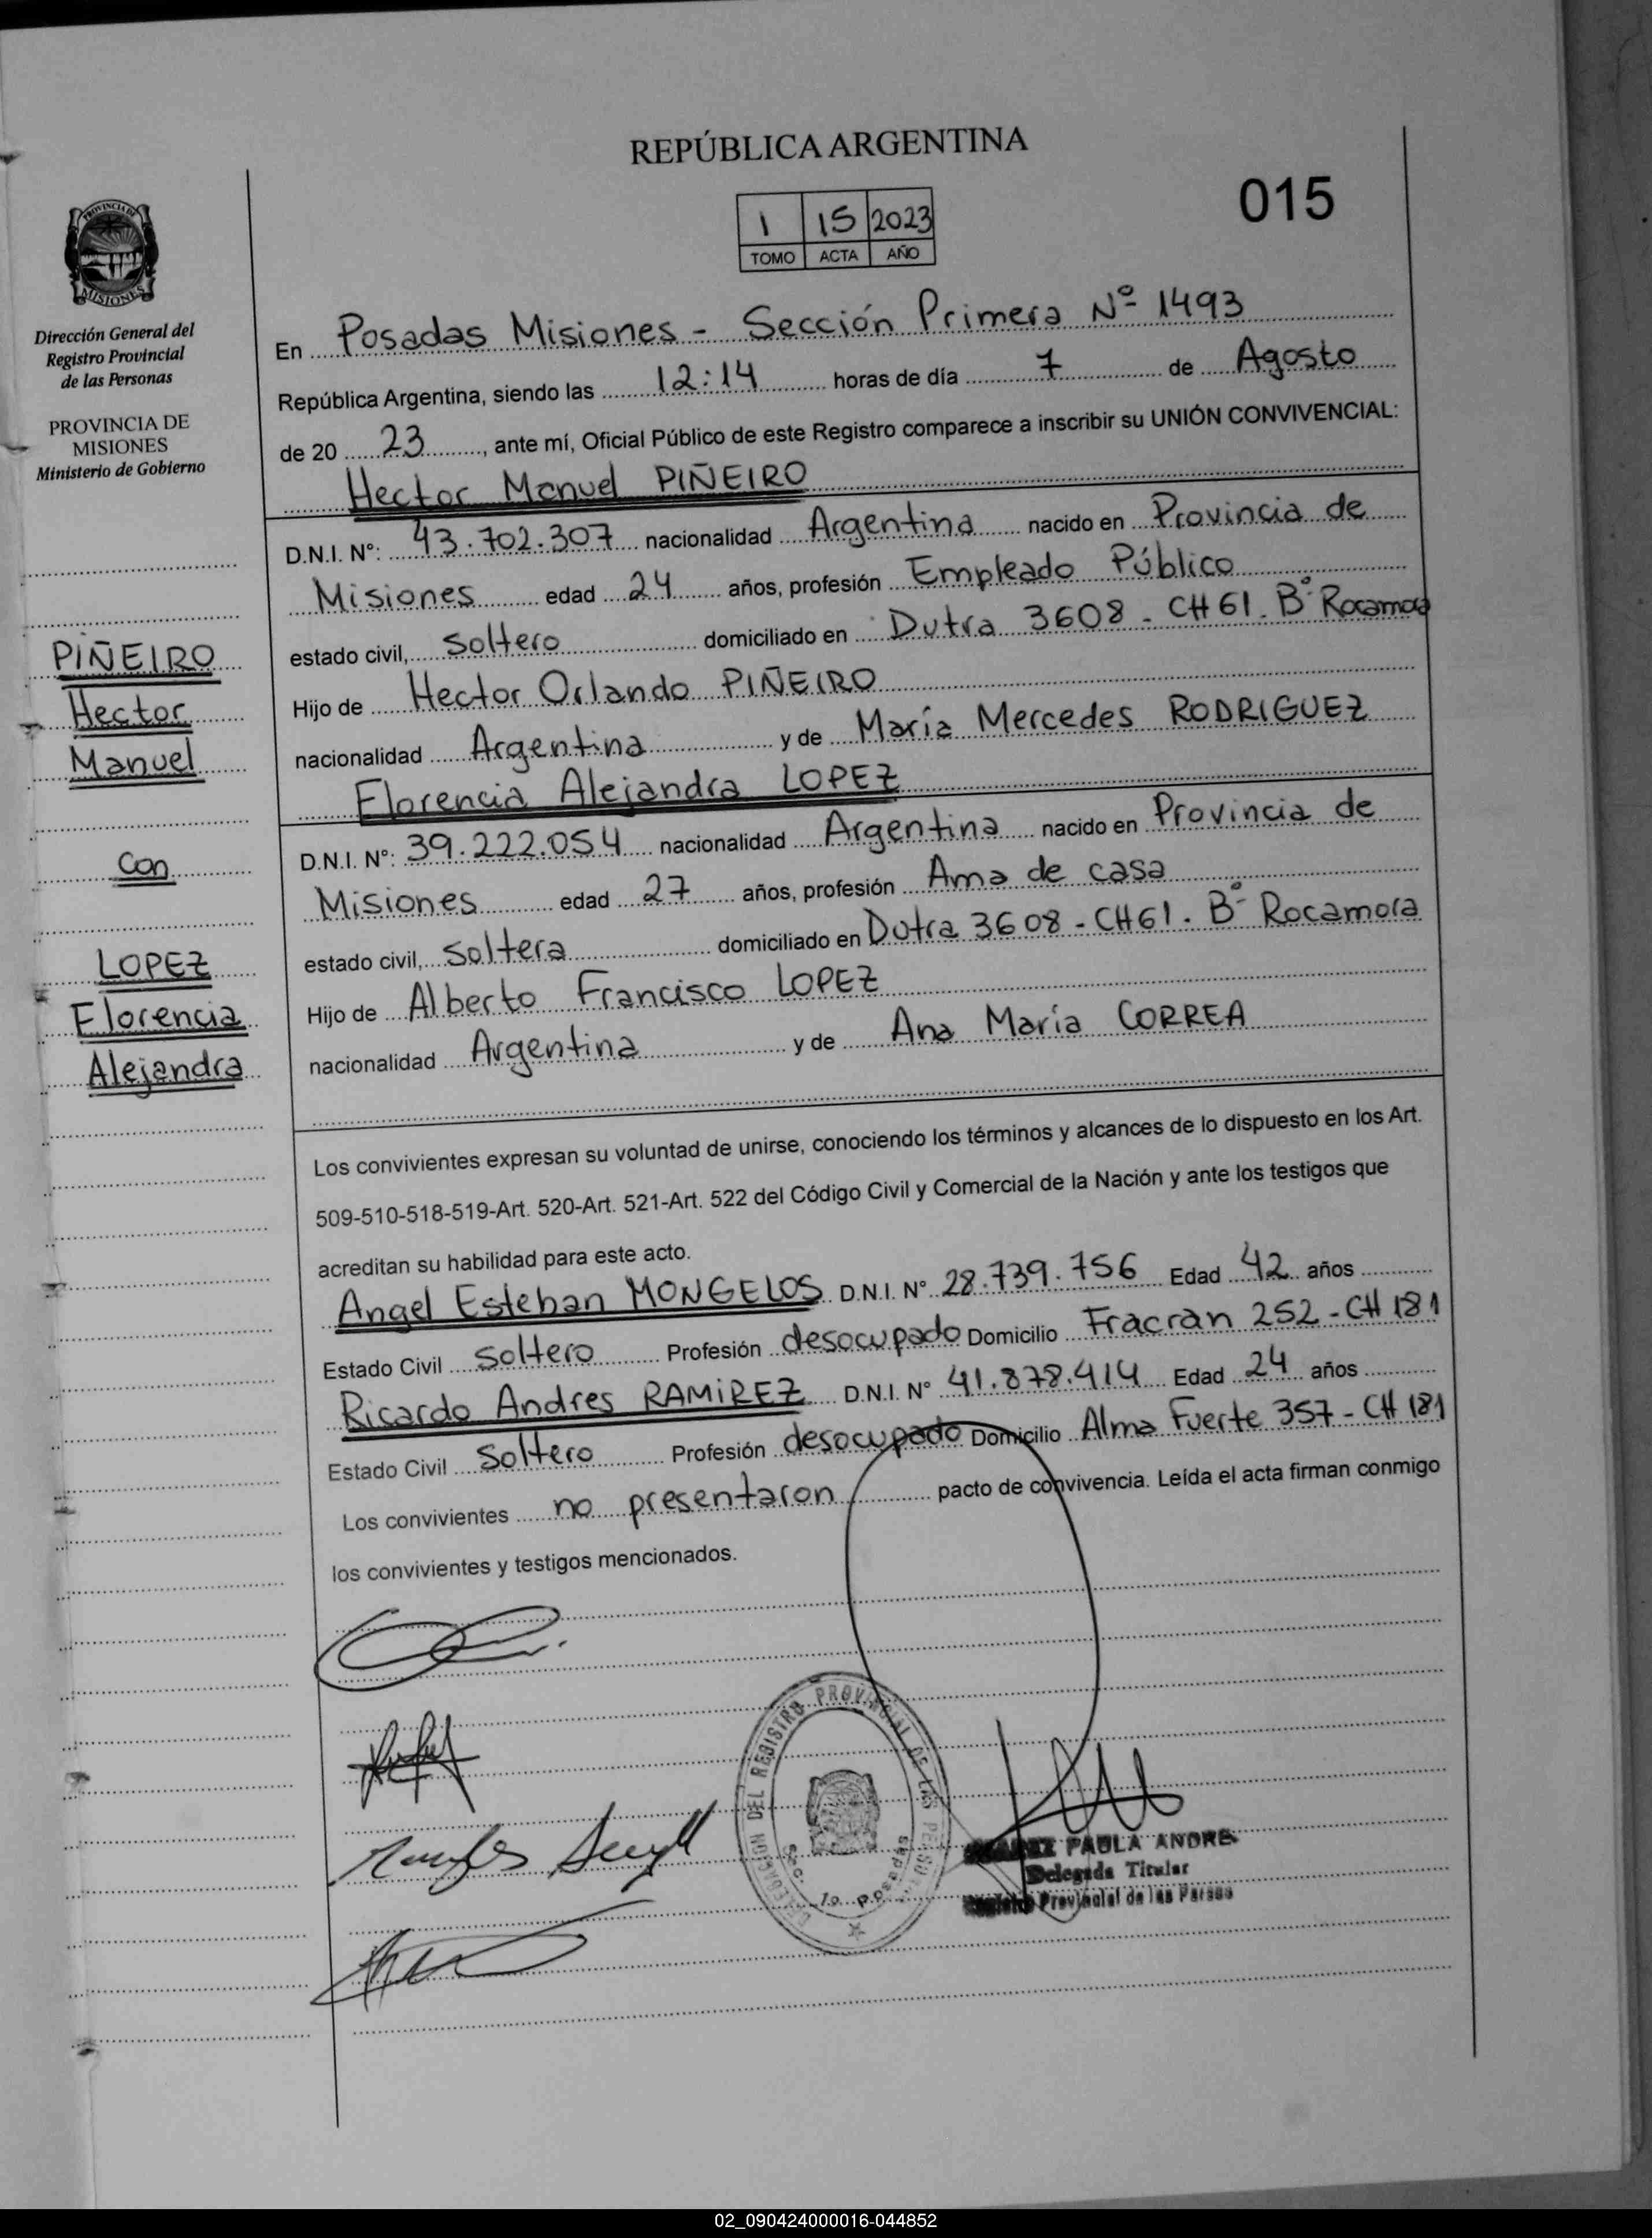 REPÚBLICA ARGENTINA
015
1 15 2023
TOMO ACTA AÑO
PROVINCIA DE
MISIONES
Dirección General del
Registro Provincial
de las Personas
PROVINCIA DE
MISIONES
Ministerio de Gobierno
PIÑEIRO
Hector
Manuel
Con
LOPEZ
Florencia
Alejandra
En Posadas Misiones - Sección Primera Nº 1493
República Argentina, siendo las 12:14 horas de día 7 de Agosto
de 20 23, ante mí, Oficial Público de este Registro comparece a inscribir su UNIÓN CONVIVENCIAL:
Hector Manuel PIÑEIRO
D.N.I. Nº: 43.702.307 nacionalidad Argentina nacido en Provincia de
Misiones edad 24 años, profesión Empleado Público
estado civil, Soltero domiciliado en Dutra 3608 - CH 61. Bº Rocamora
Hijo de Hector Orlando PIÑEIRO
nacionalidad Argentina y de María Mercedes RODRIGUEZ
Florencia Alejandra LOPEZ
D.N.I. Nº: 39.222.054 nacionalidad Argentina nacido en Provincia de
Misiones edad 27 años, profesión Ama de casa
estado civil, Soltera domiciliado en Dutra 3608 - CH61. Bº Rocamora
Hijo de Alberto Francisco LOPEZ
nacionalidad Argentina y de Ana María CORREA
Los convivientes expresan su voluntad de unirse, conociendo los términos y alcances de lo dispuesto en los Art.
509-510-518-519-Art. 520-Art. 521-Art. 522 del Código Civil y Comercial de la Nación y ante los testigos que
acreditan su habilidad para este acto.
Angel Esteban MONGELOS D.N.I. Nº 28.739.756 Edad 42 años
Estado Civil Soltero Profesión desocupado Domicilio Fracran 252 - CH 181
Ricardo Andres RAMIREZ D.N.I. Nº 41.878.414 Edad 24 años
Estado Civil Soltero Profesión desocupado Domicilio Alma Fuerte 357 - CH 181
Los convivientes no presentaron pacto de convivencia. Leída el acta firman conmigo
los convivientes y testigos mencionados.
DELEGACION DEL REGISTRO PROVINCIAL DE LAS
Sec. 1a. Posadas
PAULA ANDRE
Delegada Titular
Provincial de las
02_090424000016-044852